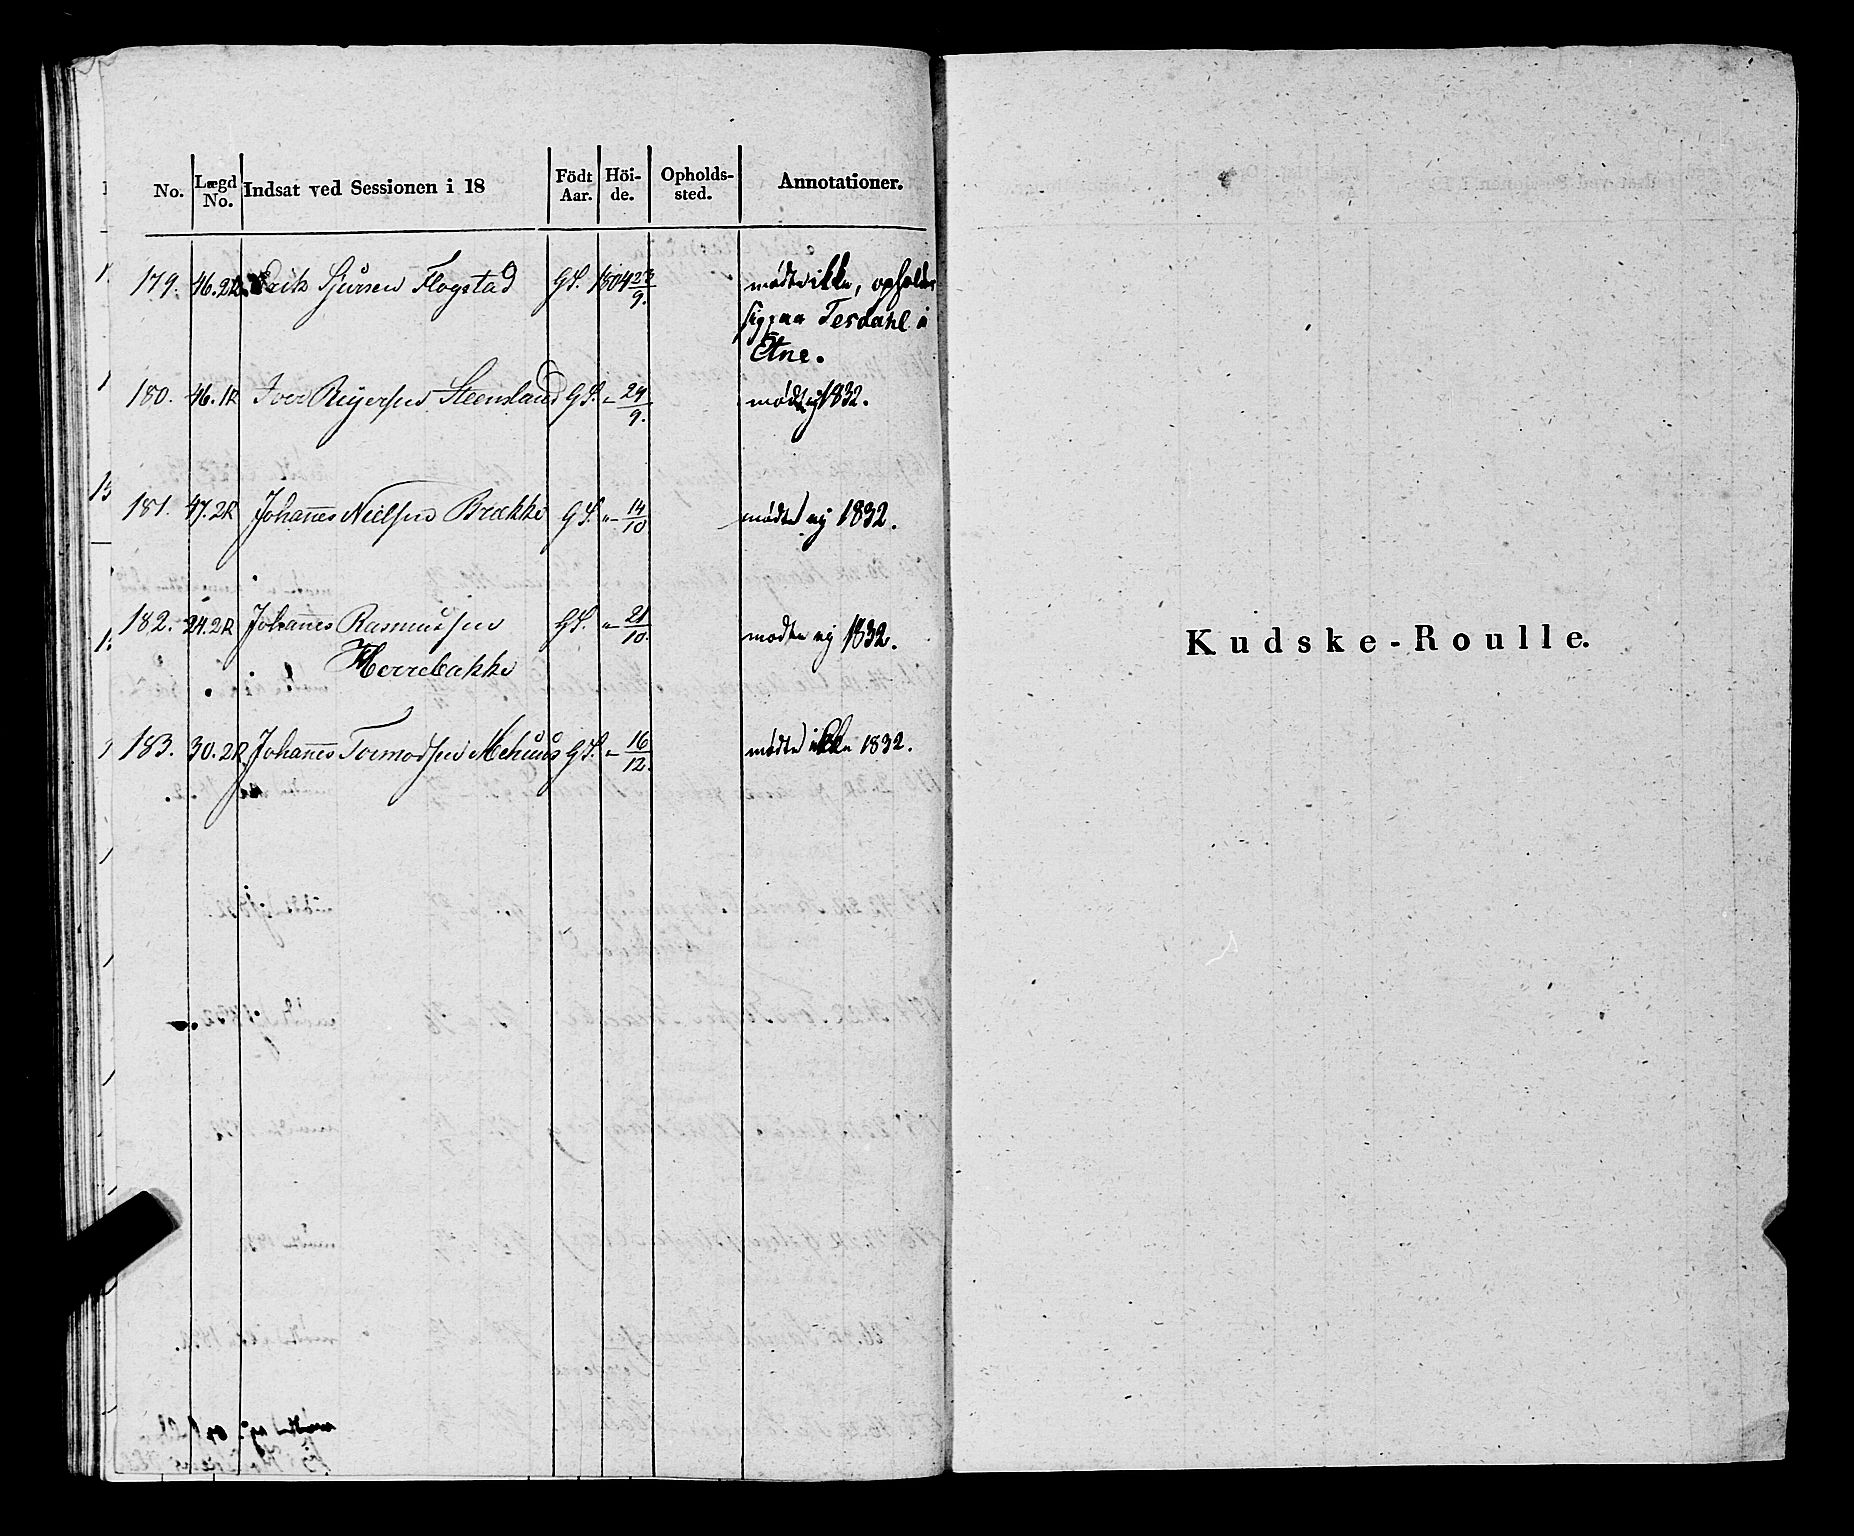 No. Lægd No. Indsat ved Sessionen i 18 Födt Aar. Höi-de. Opholds-sted. Annotationer.
179. 46.2R. Erik Sjursen Flogstad G S. 1804 23/9. mødte ikke, opholder
sig paa Tesdahl i
Etne.
180. 46.1R Iver Reiersen Steensland G S. " 24/9. mødte ej 1832.
181. 47.2R Johannes Nielsen Brække G S. " 14/10 mødte ej 1832.
182. 24.2R Johannes Rasmussen G S. " 21/10. mødte ej 1832.
Herrebakke
183. 30.2R. Johannes Tormodsen Mehuus G S. " 16/12. mødte ikke 1832.
Kudske-Roulle.